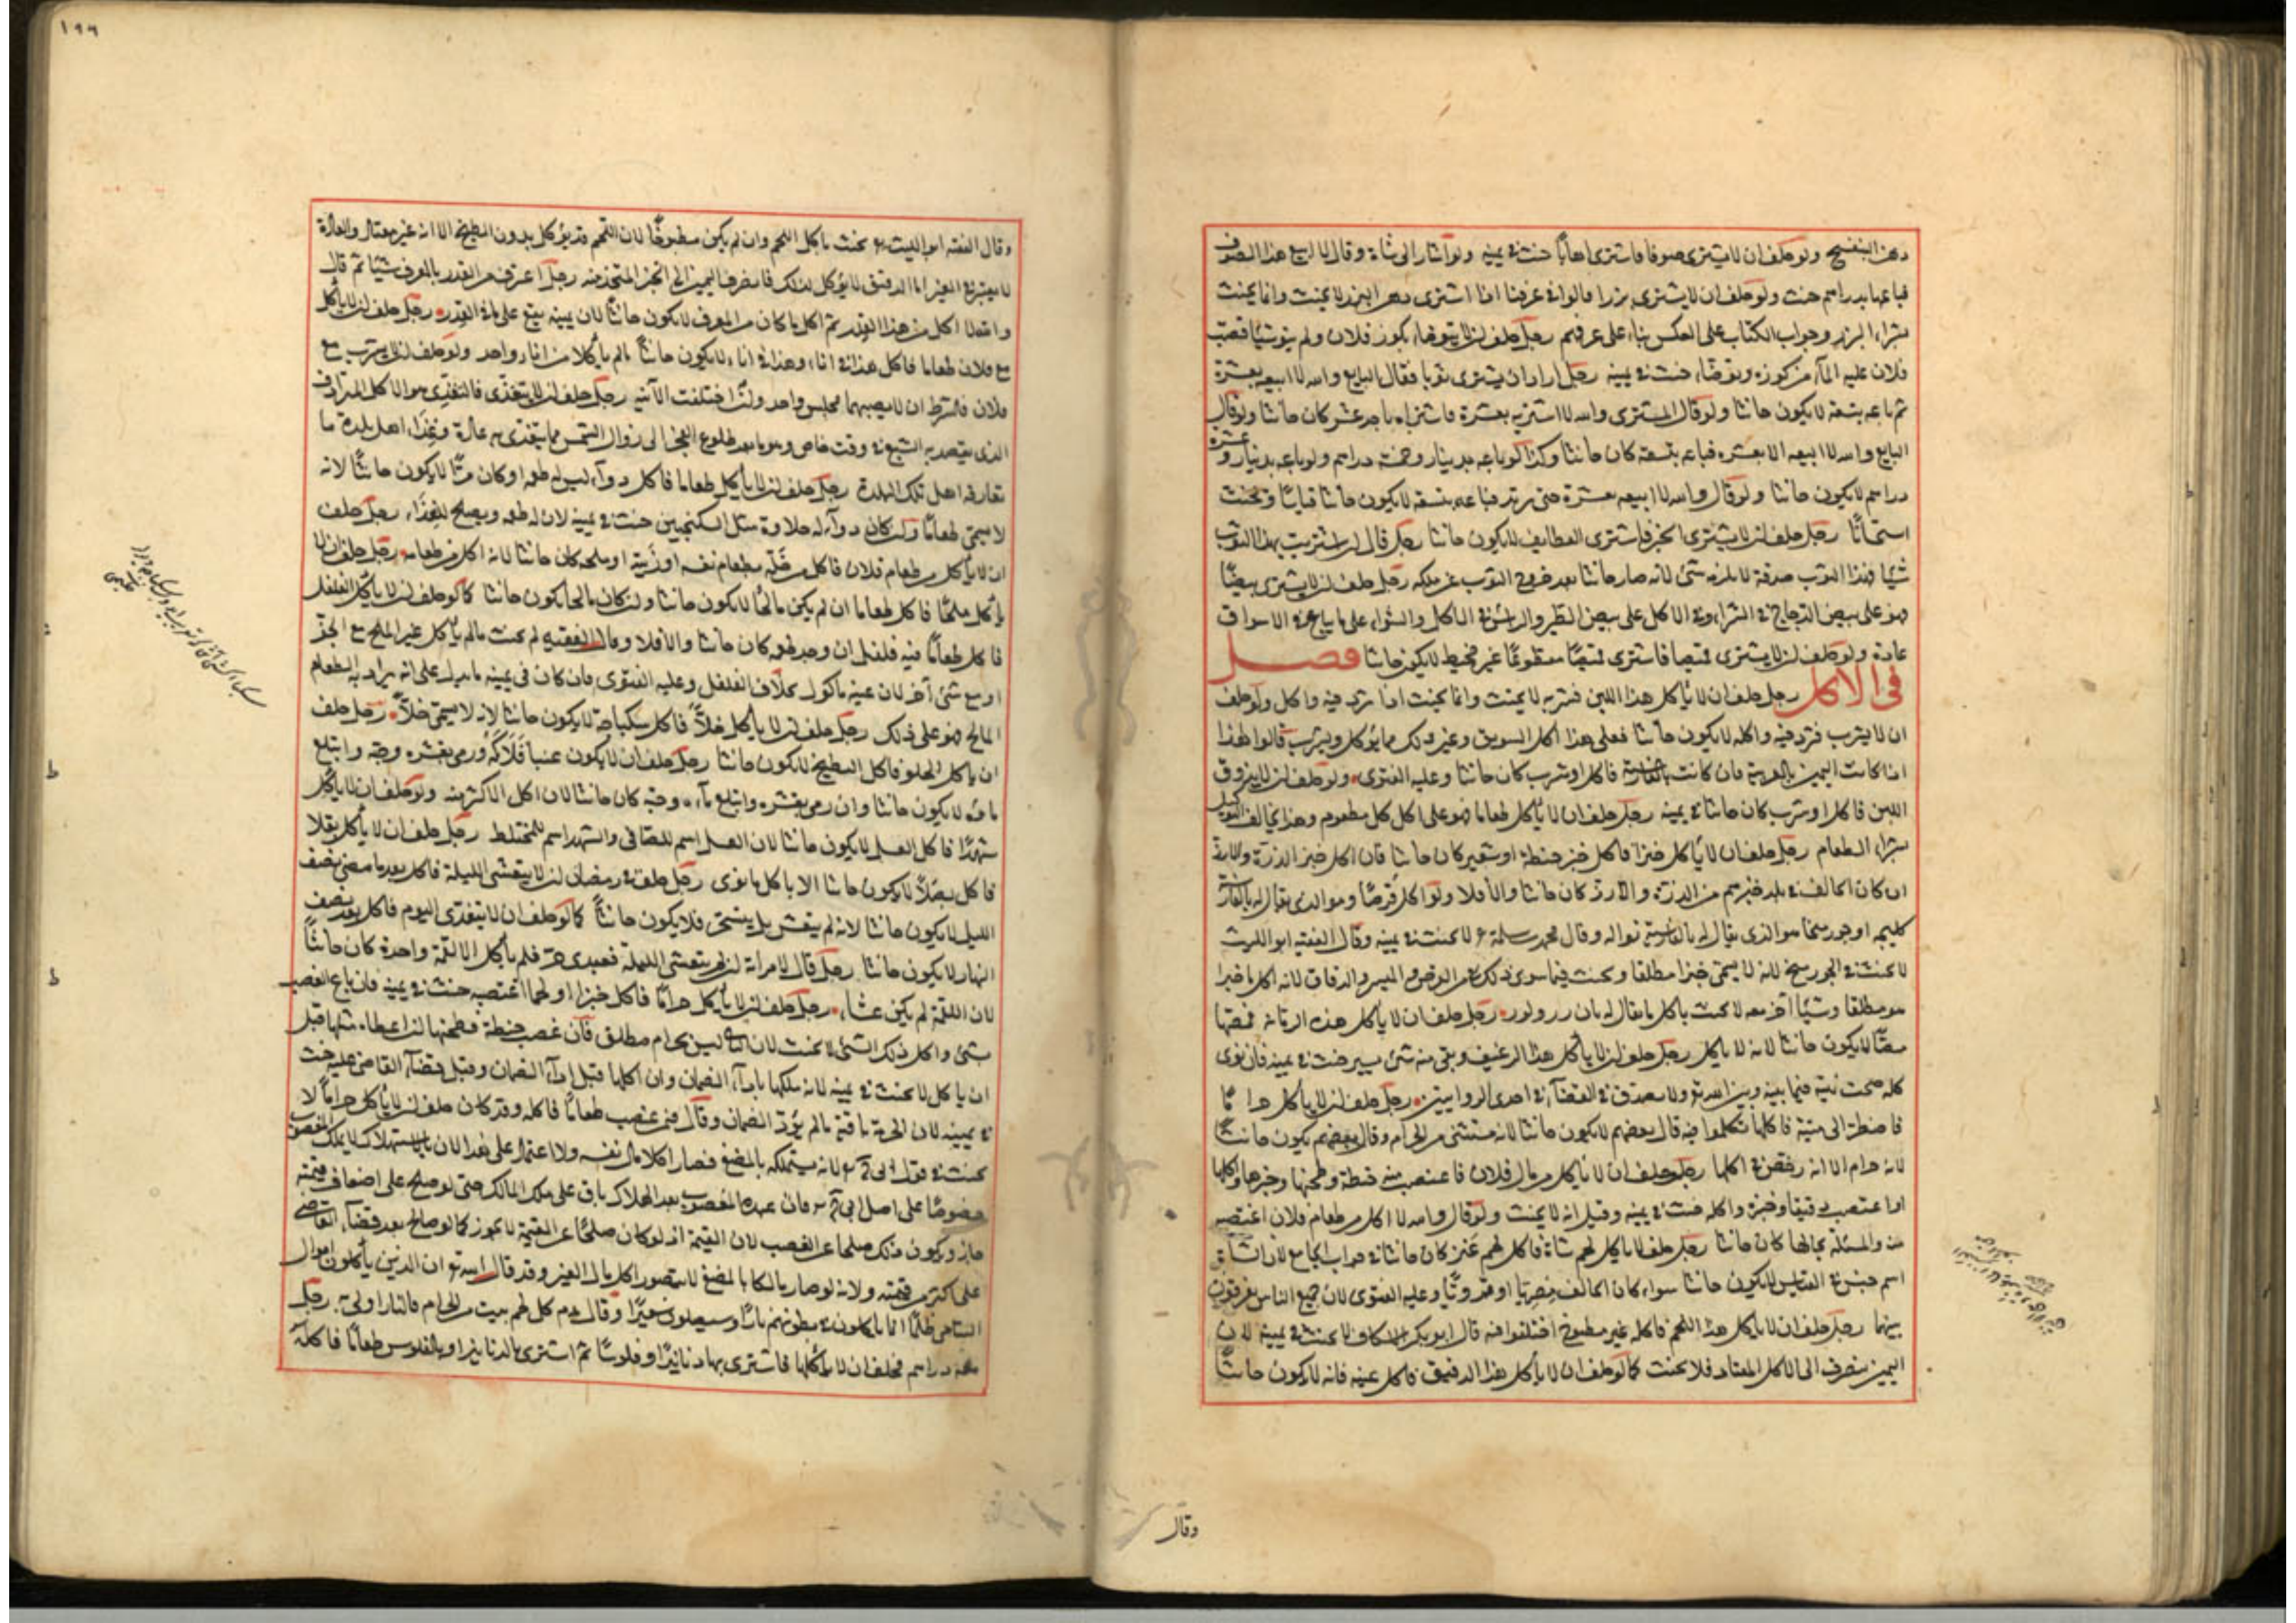 دهن البنفسج ولو حلف ان لا يشترى صوفا فاشترى اهابا حنث فى يمينه ولو اشار الى شاة وقال لا ابيع هذا الصوف
فباعها بدراهم حنث ولو حلف ان لا يشترى بزرا قالوا فى عرفنا اذا اشترى دهن البزر لا يحنث وانما يحنث
بشراء البزر وجواب الكتاب على العكس بناء على عرفهم رجل حلف ان لا يتوضا بكوز فلان ولم ينو شيئا فصب
فلان عليه الماء من كوزه وتوضا حنث فى يمينه رجل اراد ان يشترى ثوبا فقال البايع والله لا ابيعه بعشرة
ثم باعه بتسعة لا يكون حانثا ولو قال المشترى والله لا اشتريه بعشرة فاشتراه باحد عشر كان حانثا ولو قال
البايع والله لا ابيعه الا بعشرة فباعه بتسعة كان حانثا وكذا لو باعه بدينار وخمسة دراهم ولو باعه بدينار وعشرة
دراهم لا يكون حانثا ولو قال والله لا ابيعه بعشرة حتى يزيد فباعه بتسعة لا يكون حانثا قياسا ويحنث
استحسانا رجل حلف ان لا يشترى الخبز فاشترى القطايف لا يكون حانثا رجل قال ان اشتريت بهذا الثوب
شيئا فهذا الثوب صدقة لا يلزمه شئ لانه صار حانثا بعد خروج الثوب عن ملكه رجل حلف ان لا يشترى بيضا
فهو على بيض الدجاج فى الشراء وفى الاكل على بيض الطير والراس فى الاكل والشراء على ما يباع فى الاسواق
عادة ولو حلف ان لا يشترى قميصا فاشترى قميصا مقطوعا غير مخيط لا يكون حانثا فصل
فى الاكل رجل حلف ان لا ياكل هذا اللبن فشربه لا يحنث وانما يحنث اذا ثرد فيه واكل ولو حلف
ان لا يشرب فثرد فيه واكله لا يكون حانثا فعلى هذا اكل السويق وغير ذلك مما يؤكل ويشرب قالوا هذا
اذا كانت اليمين بالعربية فان كانت بالفارسية فاكل او شرب كان حانثا وعليه الفتوى ولو حلف ان لا يذوق
اللبن فاكل او شرب كان حانثا فى يمينه رجل حلف ان لا ياكل طعاما فهو على اكل كل مطعوم وهذا يخالف التوكيل
بشراء الطعام رجل حلف ان لا ياكل خبزا فاكل خبز حنطة او شعير كان حانثا فان اكل خبز الذرة والارز
ان كان الحالف فى بلد خبزهم من الذرة والارز كان حانثا والا فلا ولو اكل قرصا وهو الذى يقال له بالفارسية
كليچه او جوزينجا هو الذى يقال له بالفارسية نواله وقال محمد بن سلمة رح لا يحنث فى يمينه وقال الفقيه ابو الليث
لا يحنث فى الجوزينج لانه لا يسمى خبزا مطلقا ويحنث فيما سوى ذلك من القرص والرقاق لانه اكل ما خبزا
هو مطلقا وشيئا اخر معه لا يحنث باكل ما يقال له نان رولور رجل حلف ان لا ياكل هذه الرمانة فمصها
مصا لا يكون حانثا لانه لا ياكل رجل حلف ان لا ياكل هذا الرغيف وبقى منه شئ يسير حنث فى يمينه فان نوى
كله صحت نيته فيما بينه وبين الله تع ولا يصدق فى القضاء فى احدى الروايتين رجل حلف ان لا ياكل حراما
فاضطر الى ميتة فاكلها تكلموا فيه قال بعضهم لا يكون حانثا لانه مستثنى من الحرام وقال بعضهم يكون حانثا
لانه حرام الا انه رخص فى اكلها رجل حلف ان لا ياكل من مال فلان فاغتصب منه حنطة وطحنها وخبزها واكلها
او اغتصب دقيقا وخبزه واكله حنث فى يمينه وقيل انه لا يحنث ولو قال والله لا اكل من طعام فلان اغتصبه
منه والمسئلة بحالها كان حانثا رجل حلف لا ياكل لحم شاة فاكل لحم عنز كان حانثا فى جواب الجامع لان الشاة
اسم جنس فى القياس لا يكون حانثا سواء كان الحالف مصريا او قرويا وعليه الفتوى لان جميع الناس يفرقون
بينهما رجل حلف ان لا ياكل هذا اللحم فاكله غير مطبوخ اختلفوا فيه قال ابو بكر الاسكاف لا يحنث فى يمينه لان
اليمين ينصرف الى الاكل المعتاد فلا يحنث كما لو حلف ان لا ياكل هذا الدقيق فاكل عينه فانه لا يكون حانثا
وقال
١٩٩
وقال الفقيه ابو الليث رح يحنث باكل اللحم وان لم يكن مطبوخا لان اللحم قد يؤكل بدون الطبخ الا انه غير معتاد والعادة
لا يعتبر فى العين اما الدقيق لا يؤكل كذلك فانصرف اليمين الى الخبز المتخذ منه رجل اغترف من القدر بالمغرفة شيئا ثم قال
والله لا اكل من هذا القدر ثم اكل ما كان من المغرفة لا يكون حانثا لان يمينه يقع على ما فى القدر رجل حلف ان لا ياكل
مع فلان طعاما فاكل هذا فى اناء وهذا فى اناء لا يكون حانثا ما لم ياكلا من اناء واحد ولو حلف ان لا يشرب مع
فلان فالشرط ان لا يصيبهما مجلس واحد وان اختلفت الآنية رجل حلف ان لا يتغدى فالتغدى هو الاكل المترادف
الذى يقصد به الشبع فى وقت خاص وهو ما بعد طلوع الفجر الى زوال الشمس مما يتغدى به عادة وغداء اهل بلدة ما
تعارفه اهل تلك البلدة رجل حلف ان لا ياكل طعاما فاكل دواء ليس له طعم او كان مرا لا يكون حانثا لانه
لا يسمى طعاما وان كان دواء له حلاوة مثل السكنجبين حنث فى يمينه لان له طعم ويصلح للغذاء رجل حلف
ان لا ياكل من طعام فلان فاكل من خله بطعام نفسه او زيته او ملحه كان حانثا لانه اكل من طعامه رجل حلف ان لا
ياكل ملحا فاكل طعاما ان لم يكن مالحا لا يكون حانثا وان كان مالحا يكون حانثا كما لو حلف ان لا ياكل الفلفل
فاكل طعاما فيه فلفل ان وجد طعمه كان حانثا والا فلا وقال الفقيه لم يحنث ما لم ياكل عين الملح مع الخبز
او مع شئ آخر لان عينه ماكول بخلاف الفلفل وعليه الفتوى فان كان فى يمينه ما يدل على انه يراد به الطعام
المالح فهو على ذلك رجل حلف ان لا ياكل خلا فاكل سكباجة لا يكون حانثا لانه لا يسمى خلا رجل حلف
ان ياكل الحلو فاكل البطيخ لا يكون حانثا رجل حلف ان لا يكون عنبا فلاكه ورمى بقشره وحبه وابتلع
ماءه لا يكون حانثا وان رمى بقشره وابتلع ماءه وحبه كان حانثا لان اكل الاكثر منه ولو حلف ان لا ياكل
شهدا فاكل العسل لا يكون حانثا لان العسل اسم للصافى والشهد اسم للمختلط رجل حلف ان لا ياكل بقلا
فاكل بصلا لا يكون حانثا الا باكل ما نوى رجل حلف فى رمضان ان لا يتعشى الليلة فاكل بعد ما مضى نصف
الليل لا يكون حانثا لانه لم يتعش بل يتسحر فلا يكون حانثا كما لو حلف ان لا يتغدى اليوم فاكل بعد نصف
النهار لا يكون حانثا رجل قال لامراته ان لم يتعشى الليلة فعبدى حر فلم ياكل الا لقمة واحدة كان حانثا
لان اللقمة لم يكن عشاء رجل حلف ان لا ياكل حراما فاكل خبزا او لحما اغتصبه حنث فى يمينه فان باع الغصب
بشئ واكل ذلك الشئ لا يحنث لان ليس بحرام مطلق فان غصب حنطة فطحنها ان اعطاه مثلها قبل
ان ياكل لا يحنث فى يمينه لانه ملكها باداء الضمان وان اكلها قبل اداء الضمان وقبل قضاء القاضى عليه حنث
فى يمينه لان الحرمة باقية ما لم يؤد الضمان وقال فمن غصب طعاما فاكله وقد كان حلف ان لا ياكل حراما لا
يحنث فى قول ابى ح رح لانه يستهلكه بالمضغ فصار اكلا مال نفسه ولا اعتماد على هذا لان بالاستهلاك لا يملك المغصوب
خصوصا على اصل ابى ح رح فان عنده المغصوب بعد الهلاك باق على ملك المالك حتى لو صلح على اضعاف قيمته
جاز ويكون ذلك صلحا عن الغصب لان القيمة اذ لو كان صلحا عن القيمة لا يجوز كما لو صالح بعد قضاء القاضى
على اكثر من قيمته ولانه لو صار مالكا بالمضغ لا يتصور اكل مال الغير وقد قال الله تع ان الذين ياكلون اموال
اليتامى ظلما انما ياكلون فى بطونهم نارا وسيصلون سعيرا وقال عم كل لحم نبت من الحرام فالنار اولى به رجل
معه دراهم فحلف ان لا ياكلها فاشترى بها دنانيرا او فلوسا ثم اشترى بالدنانير او بالفلوس طعاما فاكله